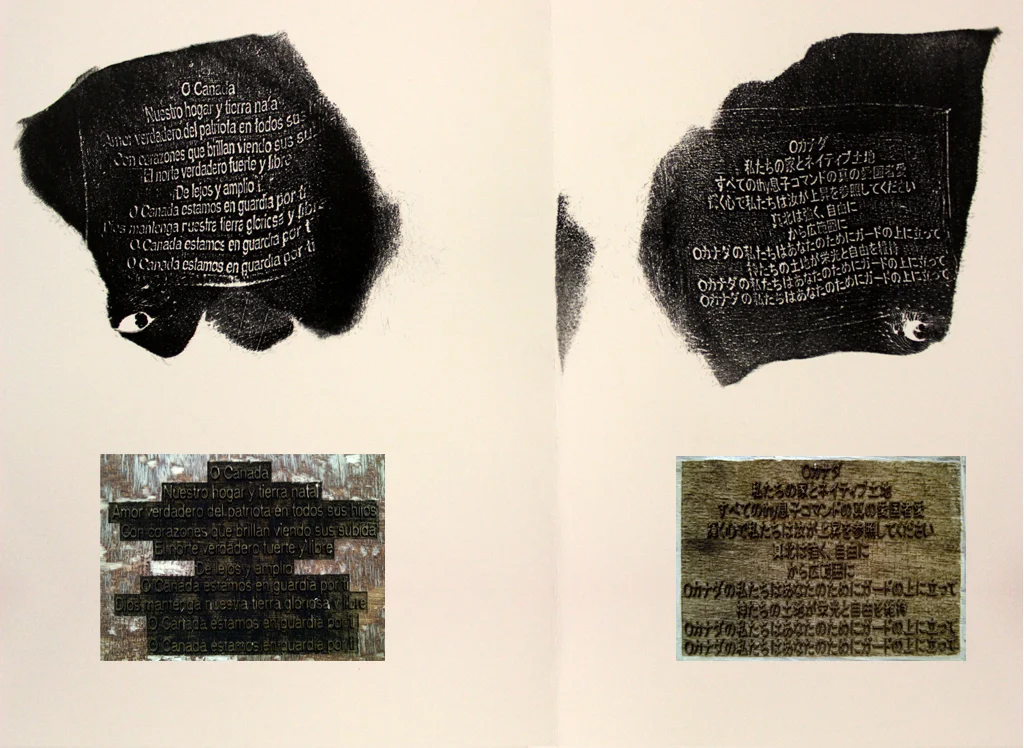 O Canada
Nuestro hogar y tierra nata
Amor verdadero del patriota en todos sus
Con corazones que brillan viendo sus su
El norte verdadero fuerte y libre
De lejos y amplio
O Canada estamos en guardia por ti
Dios mantenga nuestra tierra gloriosa y libre
O Canada estamos en guardia por ti
O Canada estamos en guardia por ti
Oカナダ
私たちの家とネイティブ土地
すべてのthy息子コマンドの真の愛国者愛
輝く心で私たちは汝が上昇を参照してください
真北は強く、自由に
から広範囲に
Oカナダの私たちはあなたのためにガードの上に立って
神たちの土地が栄光と自由を維持
Oカナダの私たちはあなたのためにガードの上に立って
Oカナダの私たちはあなたのためにガードの上に立って
O Canada
Nuestro hogar y tierra natal
Amor verdadero del patriota en todos sus hijos
Con corazones que brillan viendo sus subida
El norte verdadero fuerte y libre
De lejos y amplio
O Canada estamos en guardia por ti
Dios mantenga nuestra tierra gloriosa y libre
O Canada estamos en guardia por ti
O Canada estamos en guardia por ti
Oカナダ
私たちの家とネイティブ土地
すべてのthy息子コマンドの真の愛国者愛
輝く心で私たちは汝が上昇を参照してください
真北は強く、自由に
から広範囲に
Oカナダの私たちはあなたのためにガードの上に立って
神たちの土地が栄光と自由を維持
Oカナダの私たちはあなたのためにガードの上に立って
Oカナダの私たちはあなたのためにガードの上に立って